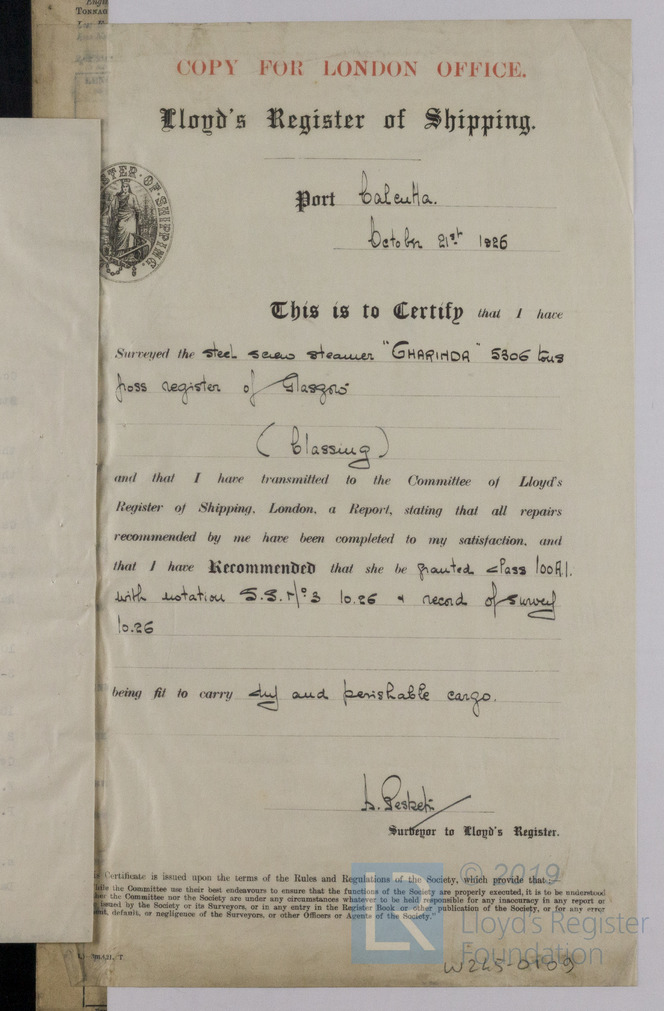 TONNAG
COPY FOR LONDON OFFICE.
Lloyd's Register of Shipping.
STER·OF·SHIPPING.
Port Calcutta.
October 21st 1926
This is to Certify that I have
Surveyed the steel screw steamer "GHARINDA" 5306 tons
gross register of Glasgow
(Classing)
and that I have transmitted to the Committee of Lloyd's
Register of Shipping, London, a Report, stating that all repairs
recommended by me have been completed to my satisfaction, and
that I have Recommended that she be granted class 100A1.
with notation S.S. No 3 10.26 & record of survey
10.26
being fit to carry dry and perishable cargo.
Surveyor to Lloyd's Register.
Certificate is issued upon the terms of the Rules and Regulations of the Society, which provide that:—
the Committee use their best endeavours to ensure that the functions of the Society are properly executed, it is to be understood
the Committee nor the Society are under any circumstances whatever to be held responsible for any inaccuracy in any report or
issued by the Society or its Surveyors, or in any entry in the Register Book or other publication of the Society, or for any error
default, or negligence of the Surveyors, or other Officers or Agents of the Society."
© 2019
Lloyd's Register
Foundation
W265-0109